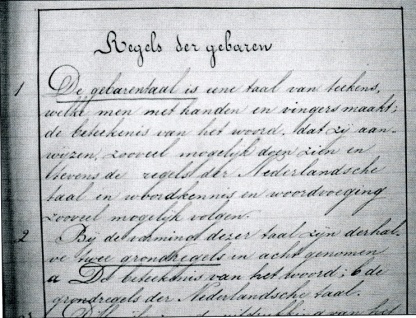 Regels der gebaren
1 De gebarentaal is eene taal van teekens,
welke men met handen en vingers maakt;
de beteekenis van het woord, dat zij aan-
wijzen, zooveel mogelijk doen zien en
tevens de regels der Nederlandsche
taal in woordkennis en woordvoeging
zooveel mogelijk volgen.
2 Bij de vorming dezer taal zijn derhal-
ve twee grondregels in acht genomen
a De beteekenis van het woord; b de
grondregels der Nederlandsche taal.
van het